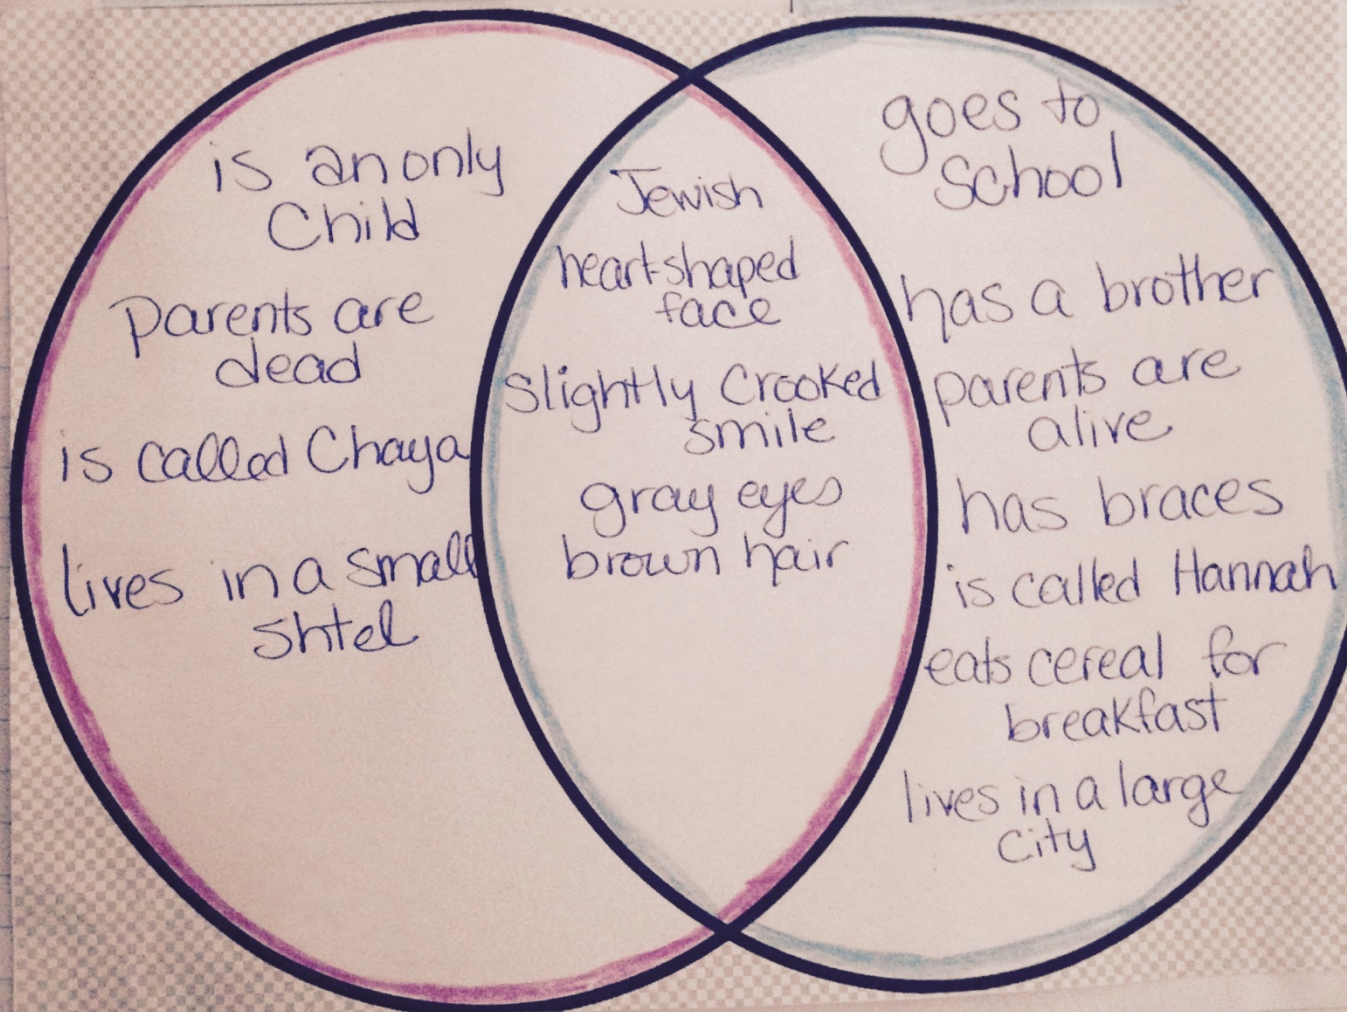 is an only
Child
Parents are
dead
is called Chaya
lives in a small
shtel
Jewish
heart-shaped
face
Slightly Crooked
smile
gray eyes
brown hair
goes to
School
has a brother
parents are
alive
has braces
is called Hannah
eats cereal for
breakfast
lives in a large
city